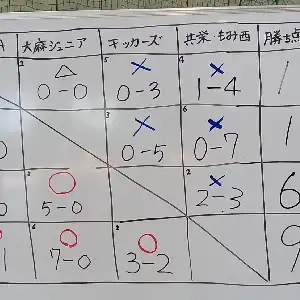 大麻ジュニア キッカーズ 共栄・もみ西 勝ち点
2 △ 5 × 4 × 1
0-0 0-3 1-4
3 × 6 × 1
0-5 0-7
5 ○ 2 × 6
5-0 2-3
6 ○ 2 ○ 9
7-0 3-2